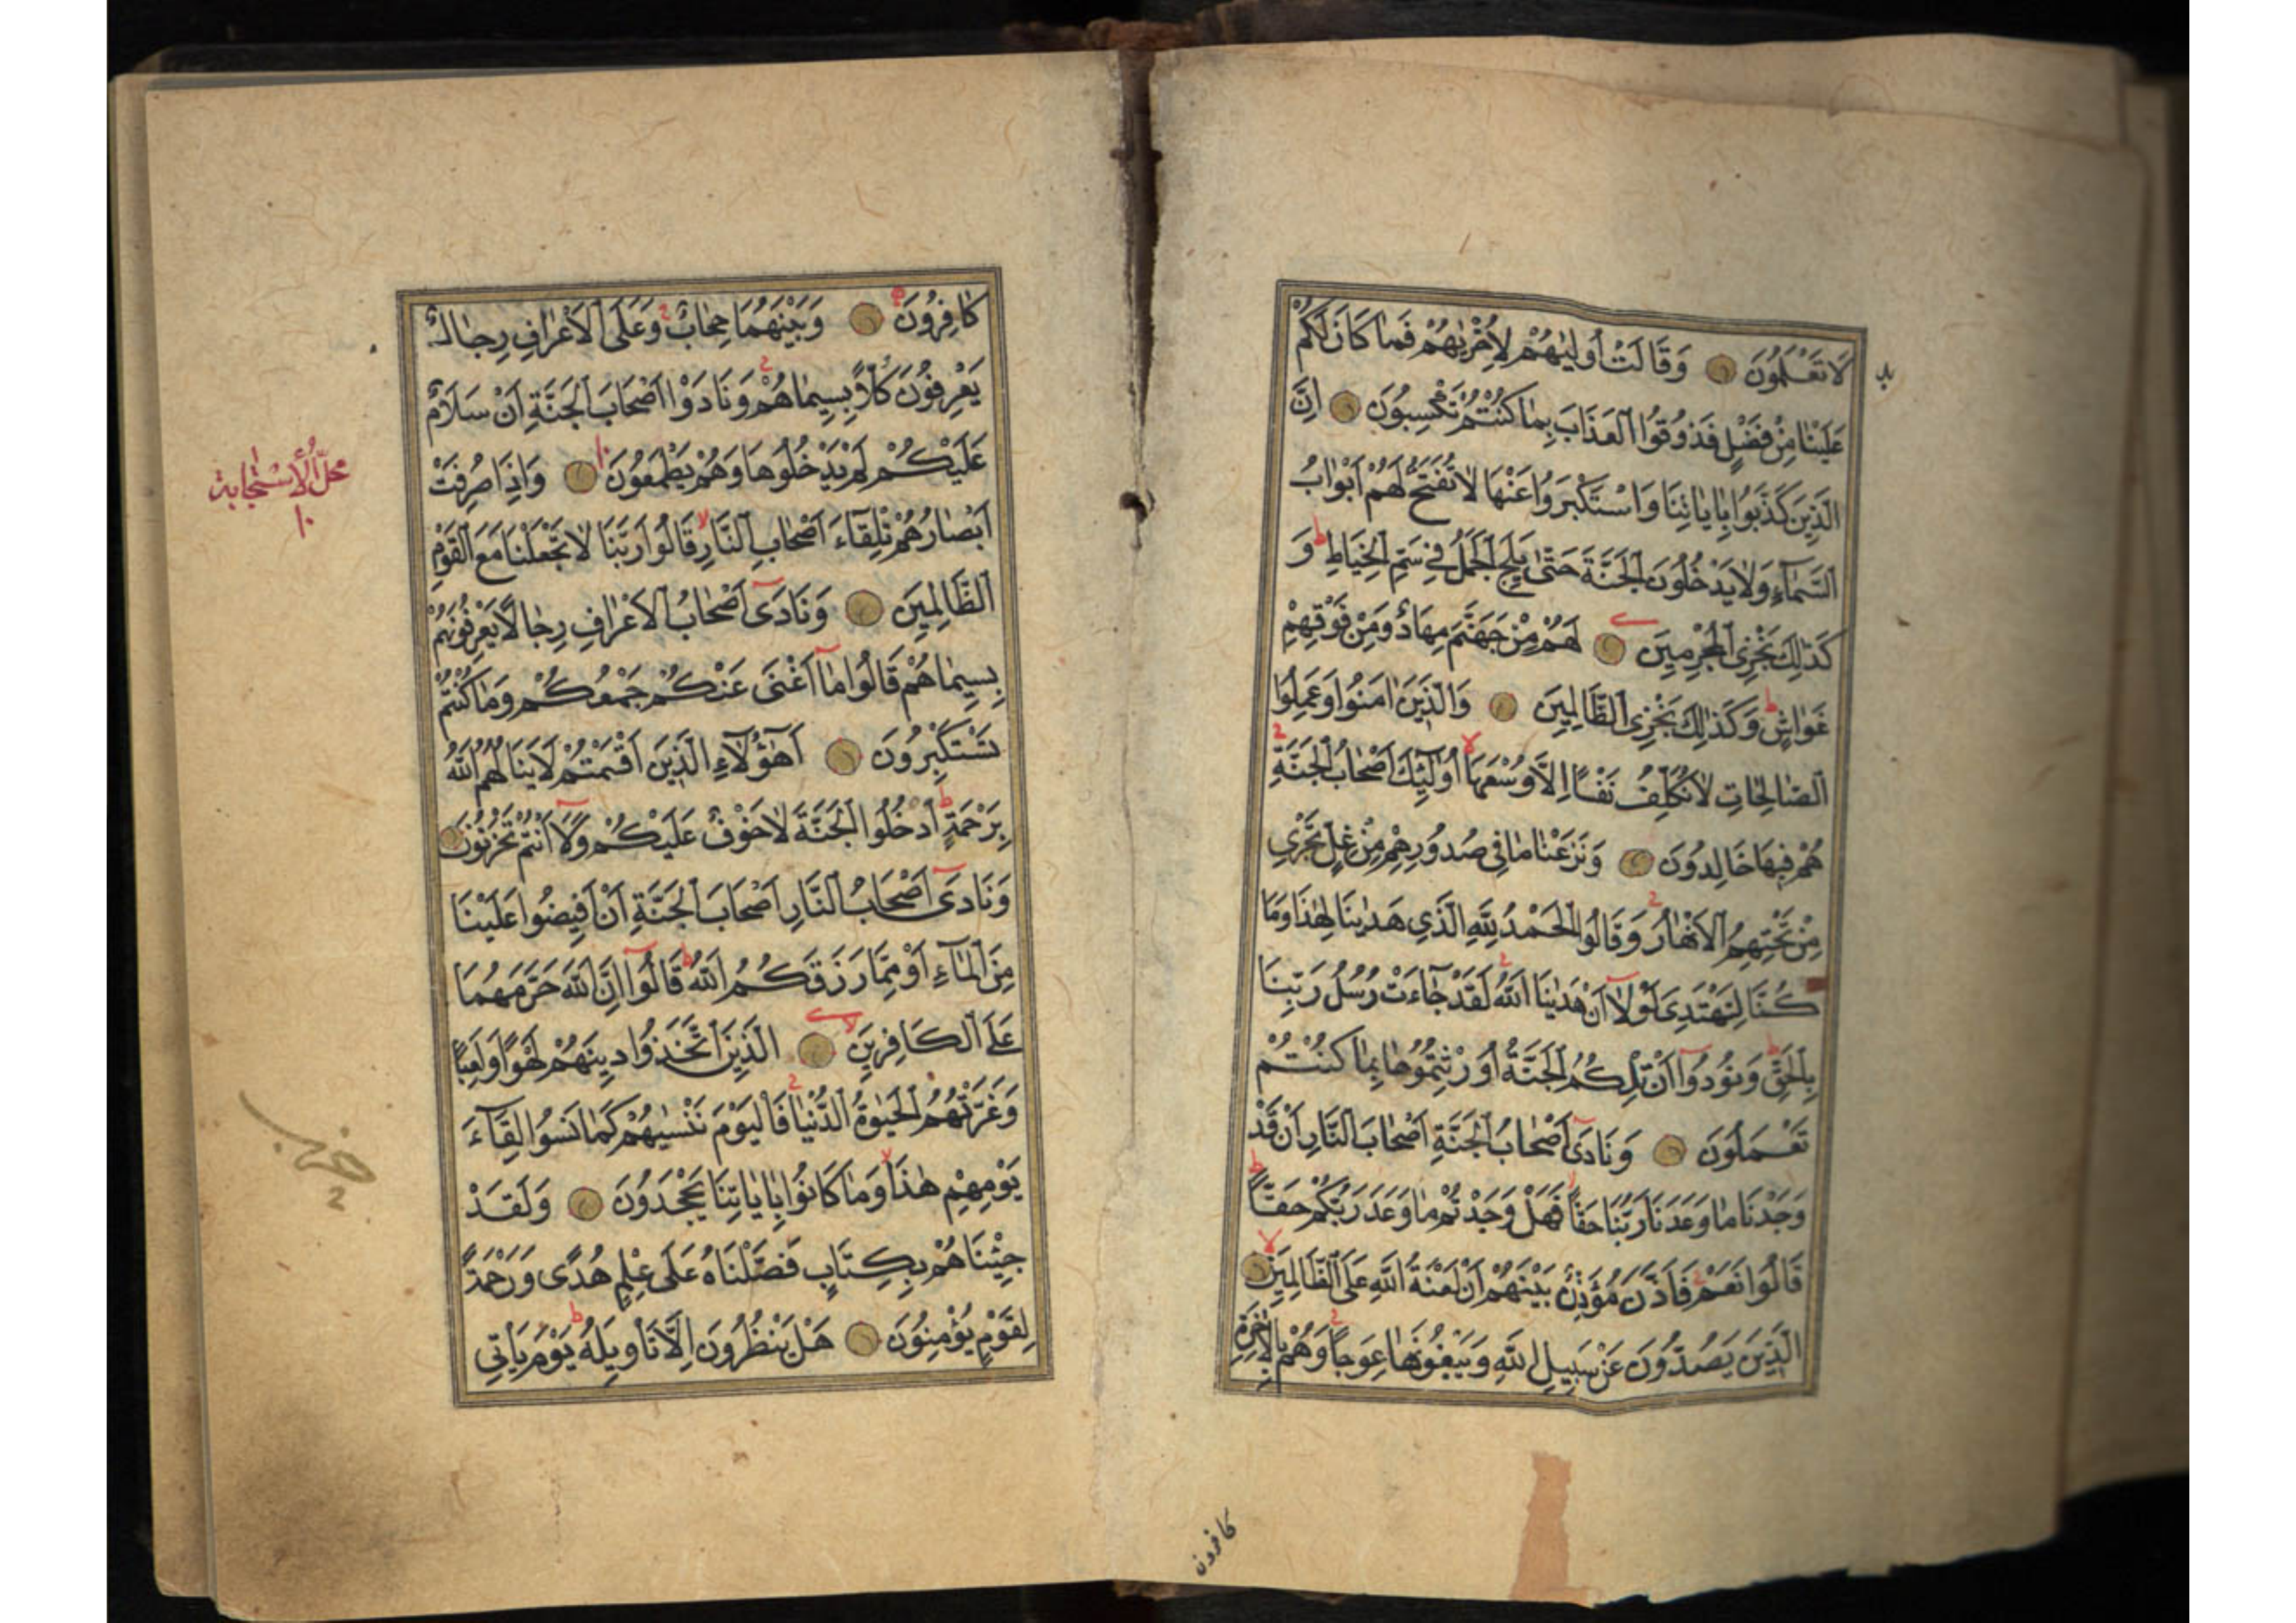 لَا تَعْلَمُونَ وَقَالَتْ أُولٰيهُمْ لِأُخْرٰيهُمْ فَمَا كَانَ لَكُمْ
عَلَيْنَا مِنْ فَضْلٍ فَذُوقُوا الْعَذَابَ بِمَا كُنْتُمْ تَكْسِبُونَ اِنَّ
الَّذِينَ كَذَّبُوا بِاٰيَاتِنَا وَاسْتَكْبَرُوا عَنْهَا لَا تُفَتَّحُ لَهُمْ اَبْوَابُ
السَّمَاءِ وَلَا يَدْخُلُونَ الْجَنَّةَ حَتّٰى يَلِجَ الْجَمَلُ فِي سَمِّ الْخِيَاطِ ط وَ
كَذٰلِكَ نَجْزِي الْمُجْرِمِينَ لَهُمْ مِنْ جَهَنَّمَ مِهَادٌ وَمِنْ فَوْقِهِمْ
غَوَاشٍ ط وَكَذٰلِكَ نَجْزِي الظَّالِمِينَ وَالَّذِينَ اٰمَنُوا وَعَمِلُوا
الصَّالِحَاتِ لَا نُكَلِّفُ نَفْسًا اِلَّا وُسْعَهَا لا اُولٰئِكَ اَصْحَابُ الْجَنَّةِ ج
هُمْ فِيهَا خَالِدُونَ وَنَزَعْنَا مَا فِي صُدُورِهِمْ مِنْ غِلٍّ تَجْرِي
مِنْ تَحْتِهِمُ الْاَنْهَارُ ج وَقَالُوا الْحَمْدُ لِلّٰهِ الَّذِي هَدٰينَا لِهٰذَا وَمَا
كُنَّا لِنَهْتَدِيَ لَوْلَا اَنْ هَدٰينَا اللّٰهُ ج لَقَدْ جَاءَتْ رُسُلُ رَبِّنَا
بِالْحَقِّ ط وَنُودُوا اَنْ تِلْكُمُ الْجَنَّةُ اُورِثْتُمُوهَا بِمَا كُنْتُمْ
تَعْمَلُونَ وَنَادٰى اَصْحَابُ الْجَنَّةِ اَصْحَابَ النَّارِ اَنْ قَدْ
وَجَدْنَا مَا وَعَدَنَا رَبُّنَا حَقًّا فَهَلْ وَجَدْتُمْ مَا وَعَدَ رَبُّكُمْ حَقًّا ط
قَالُوا نَعَمْ ج فَاَذَّنَ مُؤَذِّنٌ بَيْنَهُمْ اَنْ لَعْنَةُ اللّٰهِ عَلَى الظَّالِمِينَ لا
الَّذِينَ يَصُدُّونَ عَنْ سَبِيلِ اللّٰهِ وَيَبْغُونَهَا عِوَجًا ج وَهُمْ بِالْاٰخِرَةِ
كافرون
كَافِرُونَ وَبَيْنَهُمَا حِجَابٌ ج وَعَلَى الْاَعْرَافِ رِجَالٌ
يَعْرِفُونَ كُلًّا بِسِيمَاهُمْ ج وَنَادَوْا اَصْحَابَ الْجَنَّةِ اَنْ سَلَامٌ
عَلَيْكُمْ لَمْ يَدْخُلُوهَا وَهُمْ يَطْمَعُونَ وَاِذَا صُرِفَتْ
اَبْصَارُهُمْ تِلْقَاءَ اَصْحَابِ النَّارِ لا قَالُوا رَبَّنَا لَا تَجْعَلْنَا مَعَ الْقَوْمِ
الظَّالِمِينَ وَنَادٰى اَصْحَابُ الْاَعْرَافِ رِجَالًا يَعْرِفُونَهُمْ
بِسِيمَاهُمْ قَالُوا مَا اَغْنٰى عَنْكُمْ جَمْعُكُمْ وَمَا كُنْتُمْ
تَسْتَكْبِرُونَ اَهٰؤُلَاءِ الَّذِينَ اَقْسَمْتُمْ لَا يَنَالُهُمُ اللّٰهُ
بِرَحْمَةٍ ط اُدْخُلُوا الْجَنَّةَ لَا خَوْفٌ عَلَيْكُمْ وَلَا اَنْتُمْ تَحْزَنُونَ
وَنَادٰى اَصْحَابُ النَّارِ اَصْحَابَ الْجَنَّةِ اَنْ اَفِيضُوا عَلَيْنَا
مِنَ الْمَاءِ اَوْ مِمَّا رَزَقَكُمُ اللّٰهُ ط قَالُوا اِنَّ اللّٰهَ حَرَّمَهُمَا
عَلَى الْكَافِرِينَ لا الَّذِينَ اتَّخَذُوا دِينَهُمْ لَهْوًا وَلَعِبًا
وَغَرَّتْهُمُ الْحَيٰوةُ الدُّنْيَا ج فَالْيَوْمَ نَنْسٰيهُمْ كَمَا نَسُوا لِقَاءَ
يَوْمِهِمْ هٰذَا لا وَمَا كَانُوا بِاٰيَاتِنَا يَجْحَدُونَ وَلَقَدْ
جِئْنَاهُمْ بِكِتَابٍ فَصَّلْنَاهُ عَلٰى عِلْمٍ هُدًى وَرَحْمَةً
لِقَوْمٍ يُؤْمِنُونَ هَلْ يَنْظُرُونَ اِلَّا تَاْوِيلَهُ ط يَوْمَ يَاْتِي
محلّ الاستجابة
١٠
حزب